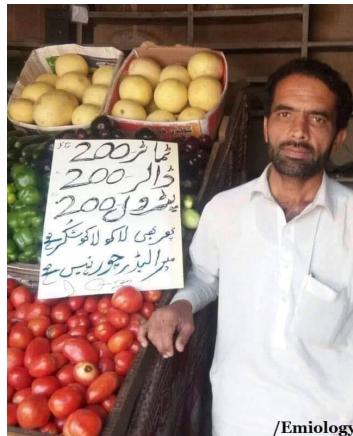 ٹماٹر 200
ڈالر 200
پٹرول 200
پھر بھی لاکھ لاکھ شکر ہے
میرا لیڈر چور نہیں ہے
/Emiology